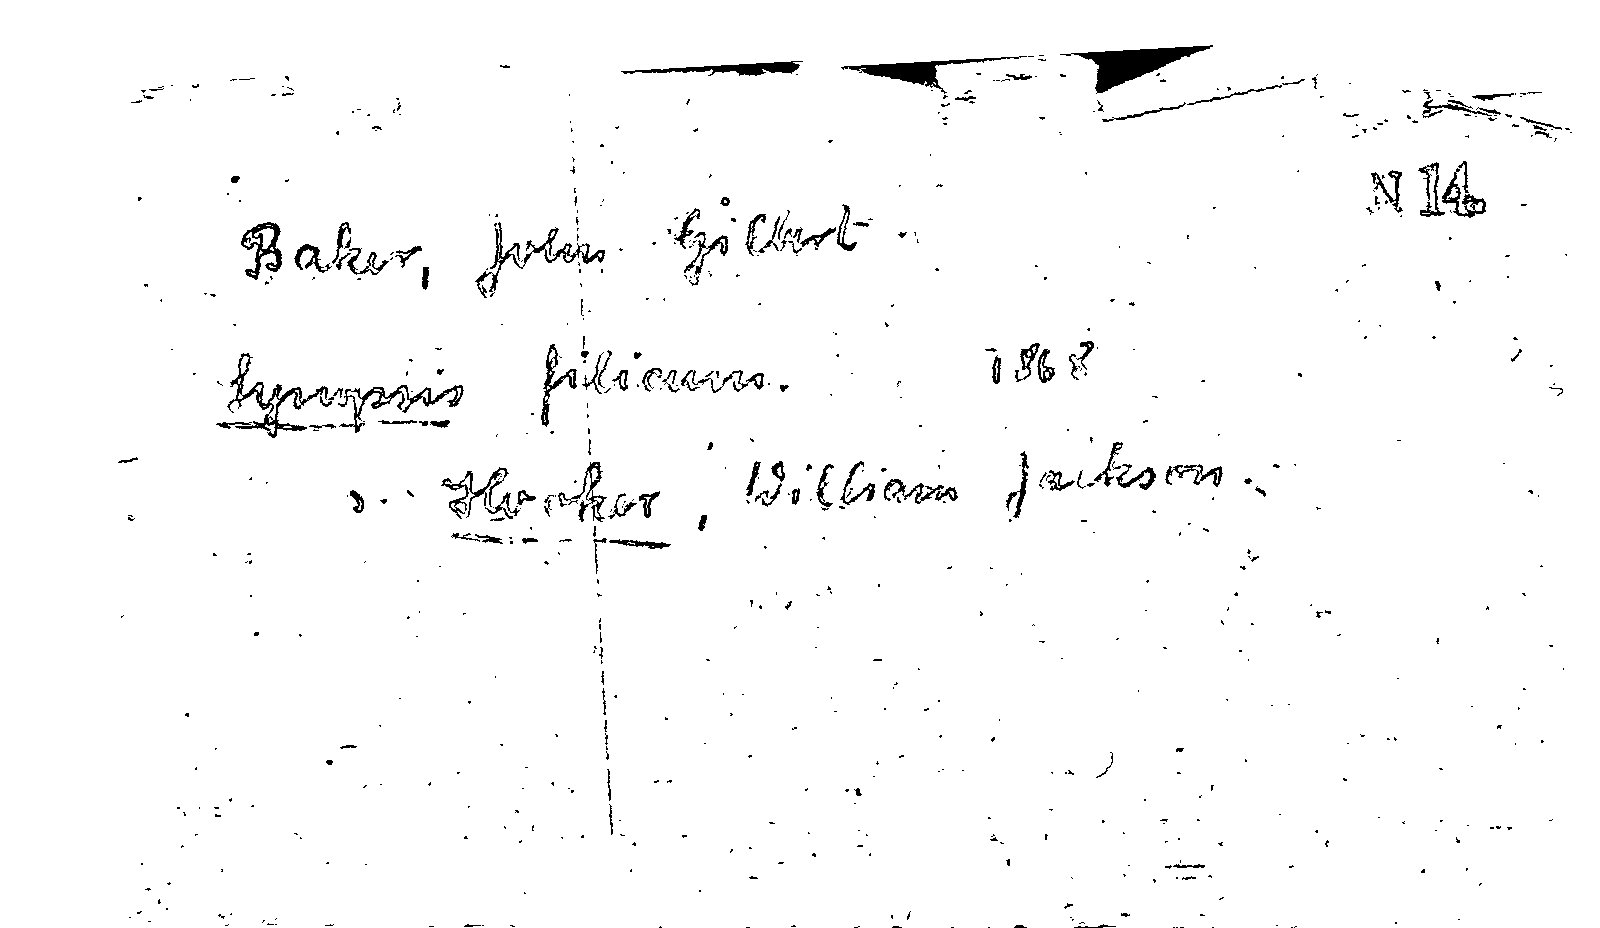 N 14.
Baker, John Gilbert
Synopsis filicum. 1868
s. Hooker, William Jackson.